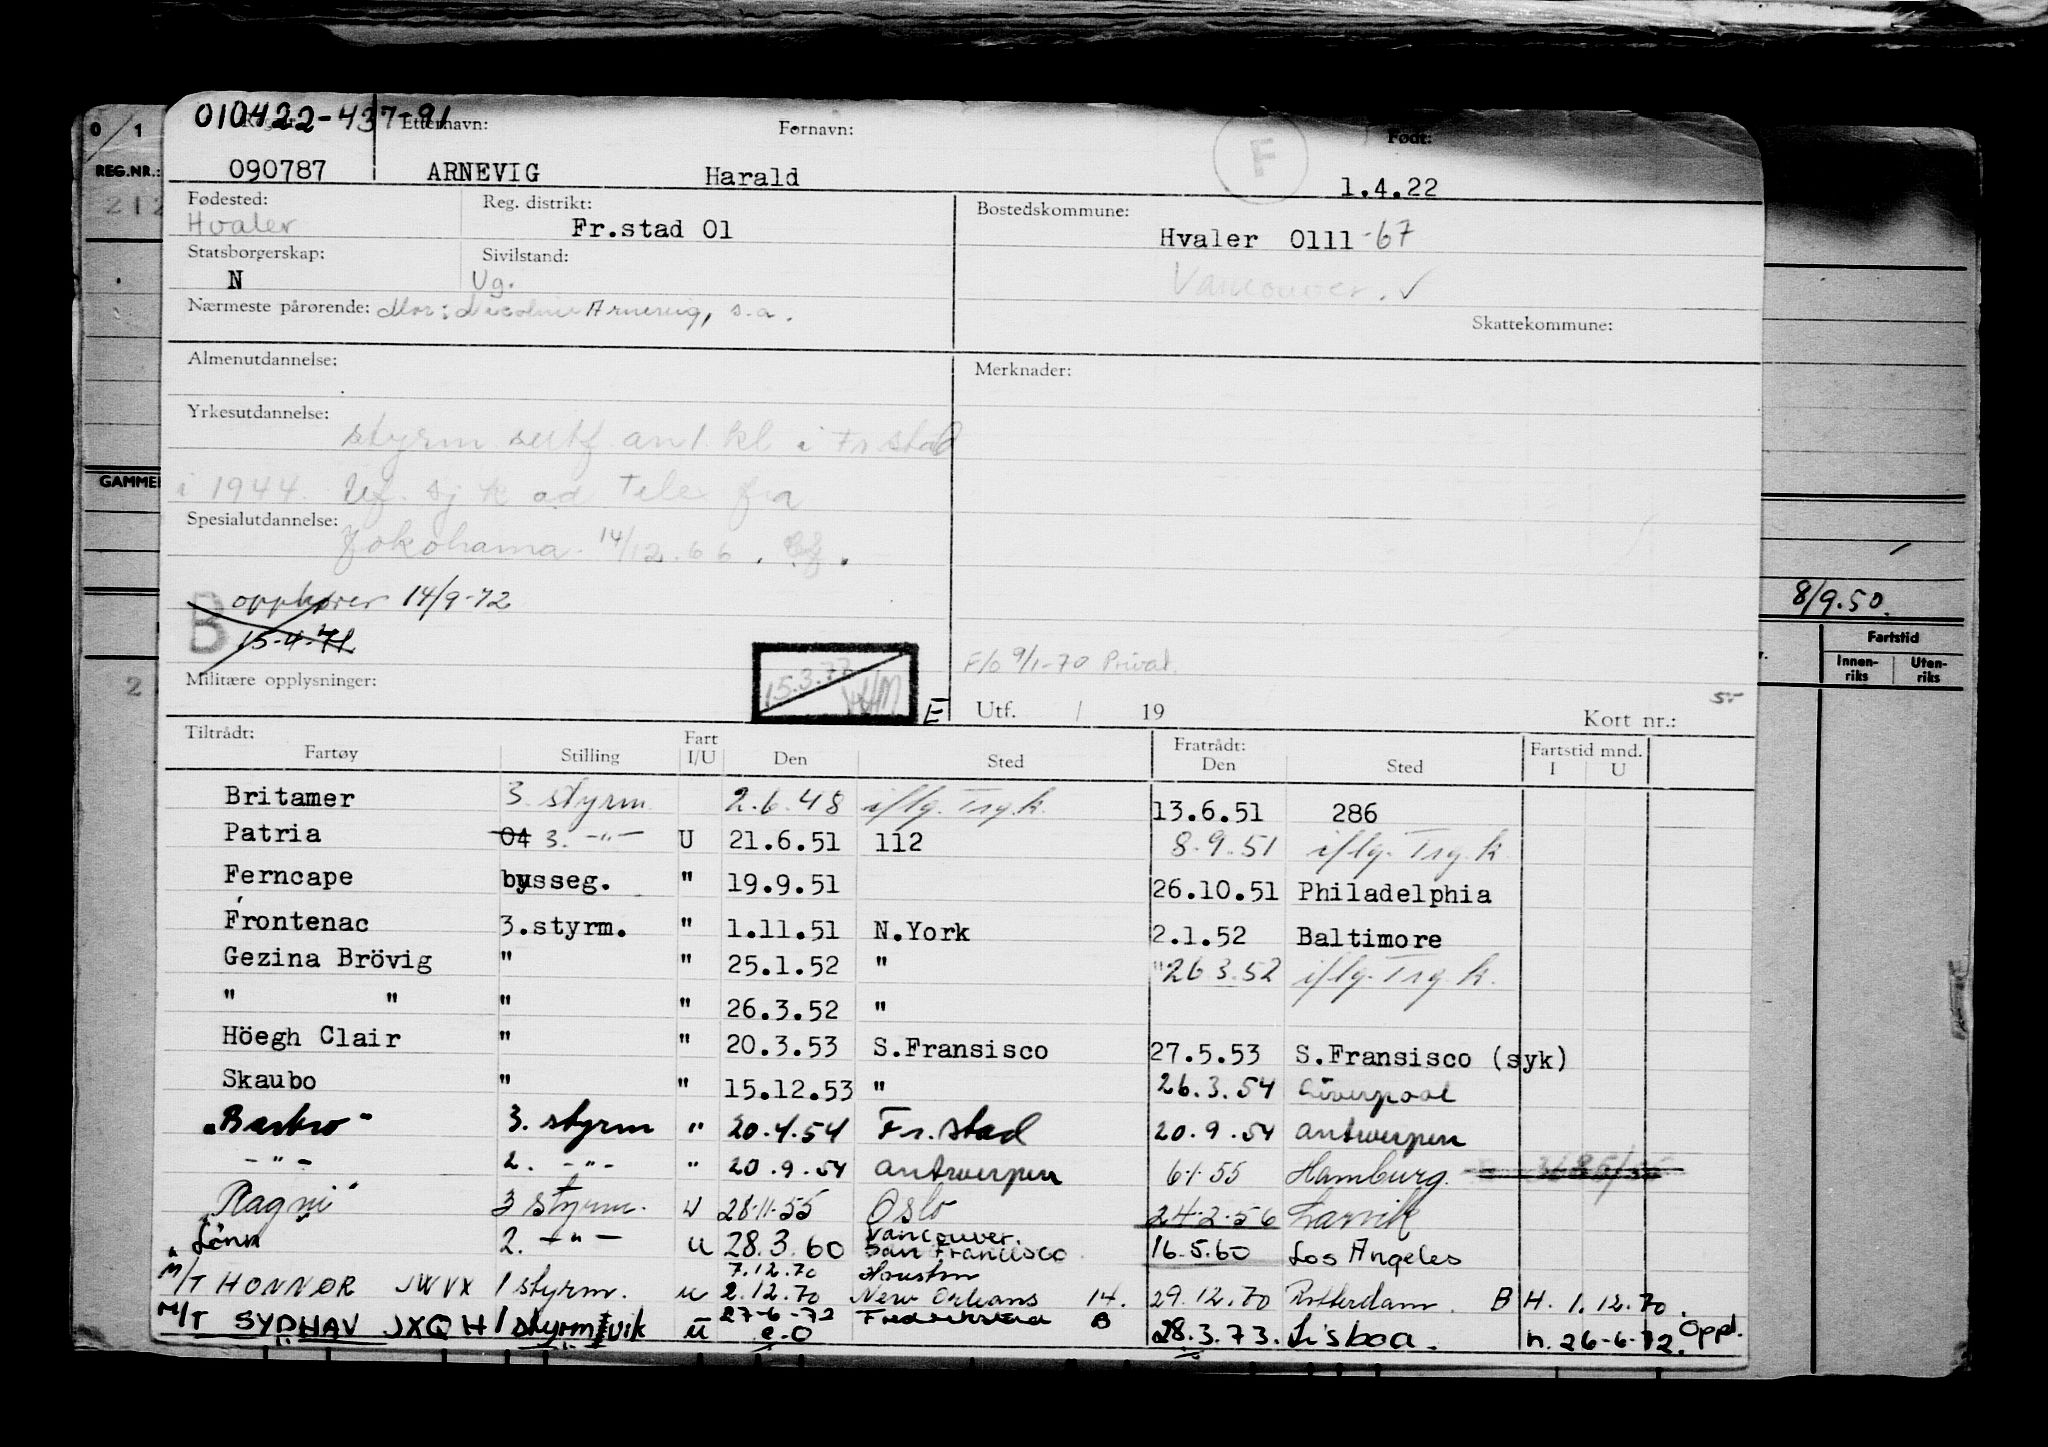 0 / 1
REG.NR.:
212
GAMMEL
2
010422-437-91
Etternavn: Fornavn: Født:
090787 ARNEVIG Harald F 1.4.22
Fødested: Reg. distrikt: Bostedskommune:
Hvaler Fr.stad 01 Hvaler 0111 -67
Statsborgerskap: Sivilstand:
N Ug. Vancouver. ✓
Nærmeste pårørende: Mor: Arnevig, s.a.
Skattekommune:
Almenutdannelse: Merknader:
Yrkesutdannelse:
styrm sertf av 1. kl i Fr.stad
i 1944. Uf. sj k od Tele fra
Spesialutdannelse:
Jokohama 14/12.66.
B opphører 14/9-72
15-4-71
Militære opplysninger:
15.3.77
E
F/o 9/1-70 Privat.
Utf. / 19 Kort nr.: 5-
8/9.50.
Fartstid
Innen-riks Uten-riks
Tiltrådt: Fart Fratrådt: Fartstid mnd.
Fartøy Stilling I/U Den Sted Den Sted I U
Britamer 3. styrm. 2.6.48 iflg. Trg.k. 13.6.51 286
Patria 04 3. -"- U 21.6.51 112 8.9.51 iflg. Trg.k.
Ferncape bysseg. " 19.9.51 26.10.51 Philadelphia
Frontenac 3.styrm. " 1.11.51 N.York 2.1.52 Baltimore
Gezina Brövig " " 25.1.52 " "26.3.52 iflg. Trg.k.
" " " " 26.3.52 "
Höegh Clair " " 20.3.53 S.Fransisco 27.5.53 S.Fransisco (syk)
Skaubo " " 15.12.53 " 26.3.54 Liverpool
"Barbro" 3. styrm " 20.4.54 Fr.stad 20.9.54 Antwerpen
-"- 2. -"- " 20.9.54 Antwerpen 6.1.55 Hamburg.
"Ragni" 3 styrm. U 28.11.55 Oslo 24.2.56 Larvik
"Lönn" 2. -"- u 28.3.60 Vancouver. San Francisco 16.5.60 Los Angeles
7.12.70 Houston
M/T HONNØR JWVX 1 styrm. u 2.12.70 New Orleans 14. 29.12.70 Rotterdam. B H. 1.12.70.
27-6-72 Fredrikstad B
M/T SYDHAV JXQH 1 styrm vik ü e.O 28.3.73. Lisboa. n. 26-6-72. Oppl.